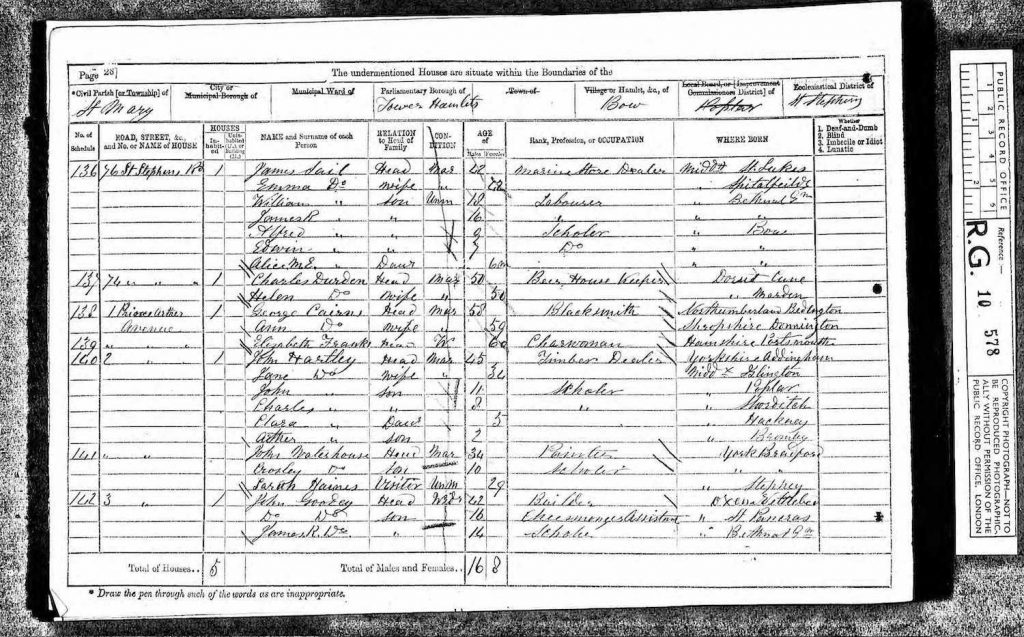 Page 28]
The undermentioned Houses are situate within the Boundaries of the
*Civil Parish [or Township] of
St Mary
City or Municipal Borough of
Municipal Ward of
Parliamentary Borough of
Tower Hamlets
Town of
Village or Hamlet, &c., of
Bow
Local Board, or [Improvement Commissioners District] of
Poplar
Ecclesiastical District of
St Stephens
No. of Schedule
ROAD, STREET, &c., and No. or NAME of HOUSE
HOUSES
Inhabited
Uninhabited (U.) or Building (B.)
NAME and Surname of each Person
RELATION to Head of Family
CONDITION
AGE of
Males
Females
Rank, Profession, or OCCUPATION
WHERE BORN
Whether
1. Deaf-and-Dumb
2. Blind
3. Imbecile or Idiot
4. Lunatic
136 76 St Stephens Rd 1 James Head Mar 42 Marine Store Dealer Middx St Lukes
Emma Do Wife " 42 Spitalfields
William " Son Unm 18 Labourer " Bethnal Gn
James R " " 16 " "
Alfred " " 9 Scholar " Bow
Edwin " " 7 Do " "
Alice M.E. " Daur 6m " "
137 74 " " " 1 Charles Durden Head Mar 50 Beer House Keeper Dorset
Helen Do Wife " 50 " Marden
138 1 Avenue 1 George Cairns Head Mar 58 Blacksmith Northumberland Bedlington
Ann Do Wife " 59 Shropshire Donnington
139 " " Elizabeth Franks Head W 60 Charwoman Hampshire Portsmouth
140 2 " 1 John Hartley Head Mar 45 Timber Dealer Yorkshire Addingham
Jane Do Wife " 34 Middx Islington
John " Son 11 Scholar " Poplar
Charles " " 8 " " Shorditch
Clara " Daur 5 " Hackney
Arther " Son 2 " Bromley
141 " " John Waterhouse Head Mar 34 Painter York Bradford
Crosley Do Son 10 Scholar " "
Sarah Haines Visitor Unm 29 " Stepney
142 3 " 1 John Head Wdr 42 Builder Oxon
Do Do Son 16 Cheesemonger Assistant " St Pancras
James R. Do " 14 Scholar " Bethnal Gn
Total of Houses.. 5
Total of Males and Females.. 16 8
* Draw the pen through such of the words as are inappropriate.
PUBLIC RECORD OFFICE
1 2 3 4 5 6
Reference:-
R.G. 10 578
COPYRIGHT PHOTOGRAPH—NOT TO BE REPRODUCED PHOTOGRAPHICALLY WITHOUT PERMISSION OF THE PUBLIC RECORD OFFICE, LONDON